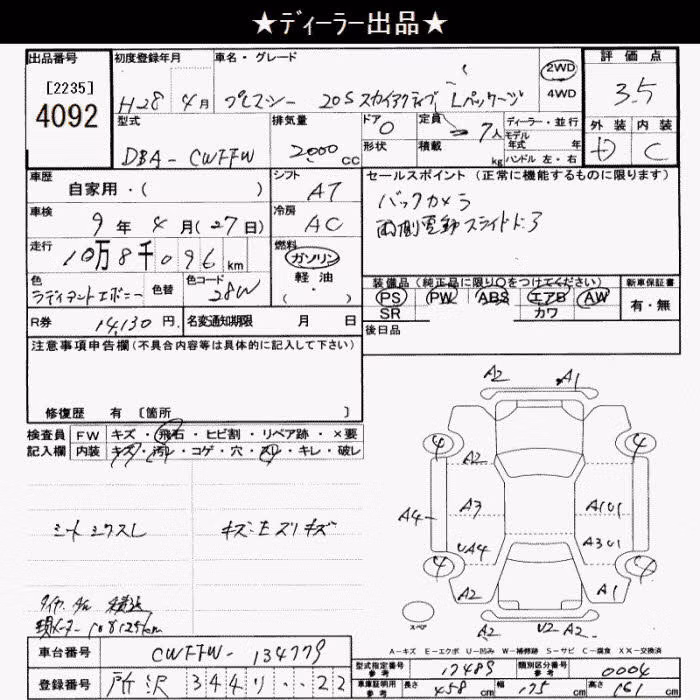 ★ディーラー出品★
出品番号 初度登録年月 車名・グレード 評価点
[2235]
4092
H28年 4月 プレマシー 20S スカイアクティブ Lパッケージ 2WD 4WD 3.5
型式 排気量 ドア 定員 ディーラー・並行 外装 内装
DBA-CWFFW 2000CC 形状 積載 7人 kg モデル年式 年 ハンドル 左・右 D C
車歴 シフト セールスポイント (正常に機能するものに限ります)
自家用・( ) AT バックカメラ
車検 冷房 両側電動スライドドア
9年 4月(27日) AC
走行 燃料
10万8千096km ガソリン 軽油・( )
装備品(純正品に限り○をつけてください) 新車保証書
色 色替 色コード PS PW ABS エアB AW 有・無
ラディアントエボニー 28W SR カワ
R券 14,130円 名変通知期限 月 日 後日品
注意事項申告欄(不具合内容等は具体的に記入して下さい)
修復歴 有 〔箇所 〕
検査員記入欄 FW キズ・飛石・ヒビ割・リペア跡・×要
内装 キズ・汚れ・コゲ・穴・スレ・キレ・破レ
A2 A1
4 4
A2
A4 A3 A1U1
UA4 A3U1
4 4
A2 A1
スペア A2 U2 A2
シートシワスレ キズ:モズリキズ
A-キズ E-エクボ U-凹み W-補修跡 S-サビ C-腐食 XX-交換済
車台番号 CWFFW-134779
型式指定番号 参考 17489 類別区分番号 参考 0004
登録番号 所沢 344 リ ・・22
車庫証明用 参考 長さ 458cm 幅 175cm 高さ 161cm